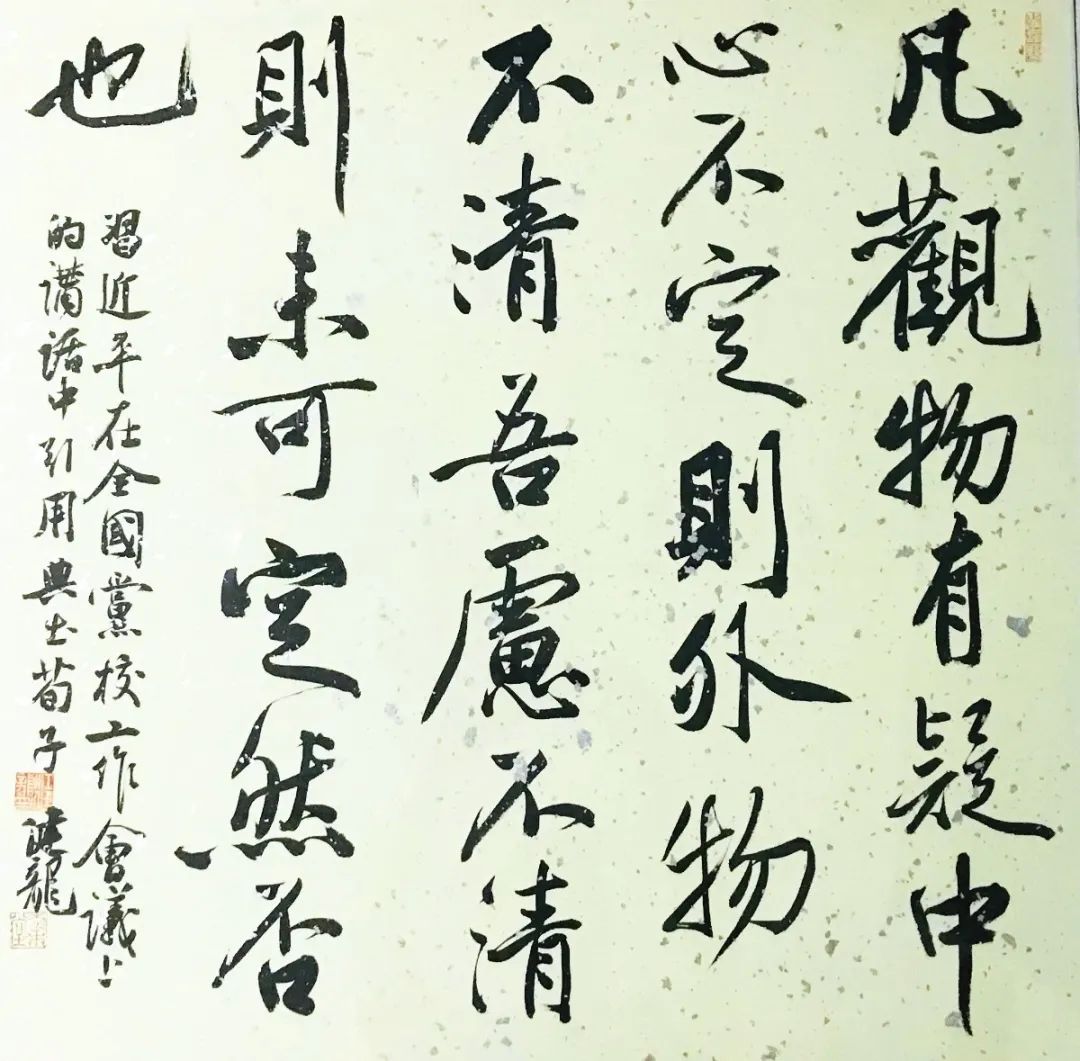 凡觀物有疑中
心不定則外物
不清吾慮不清
則未可定然否
也
習近平在全國黨校工作會議上
的講話中引用典出荀子
龍